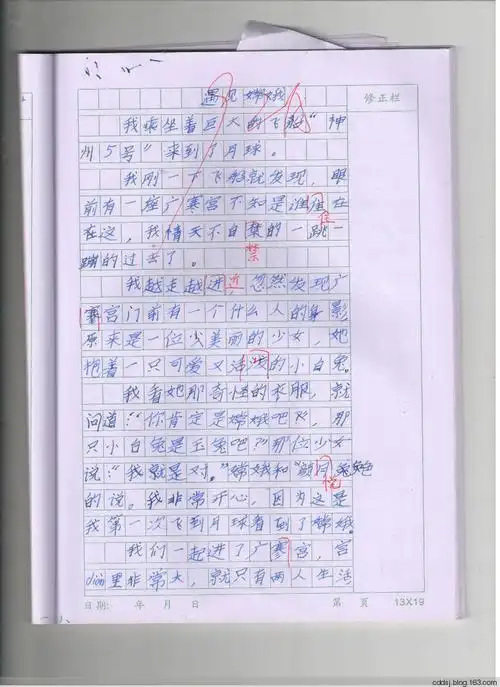 遇见嫦娥
修正栏
我乘坐着巨大的飞船“神
州5号”来到了月球。
我刚一下飞船就发现，眼
前有一座广寒宫不知是谁在
住
在这，我情天不自禁的一跳一
禁
蹦的过去了。
我越走越进近，忽然发现广
寒宫门前有一个什么人的身影
原来是一位少美丽的少女，她
抱着一只可爱又活泼的小白兔。
我看她那奇怪的衣服，就
问道：“你肯定是嫦娥吧！”，那
只小白兔是玉兔吧？”那位少女
说：“我就是对。”嫦娥和颜同兔色
悦
的说。我非常开心，因为这是
我第一次飞到月球看到了嫦娥。
我们一起进了广寒宫，宫
dian里非常大，就只有两人生活
日期： 年 月 日
第 页 13X19
cddsj.blog.163.com